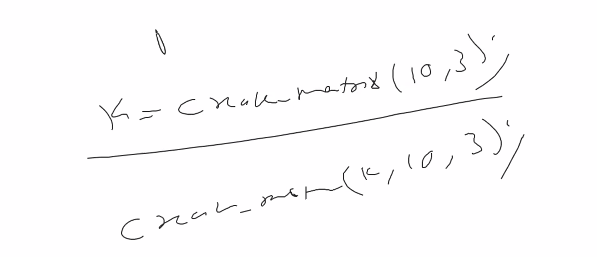 K = create_matrix(10,3);
create_mem(K,10,3);